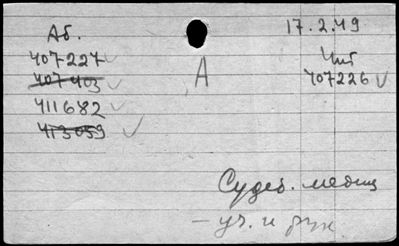 Аб.
407227
407403
411682
413059
А
17.2.49
Чит
407226
Судеб. медиц
— уч. и рук.